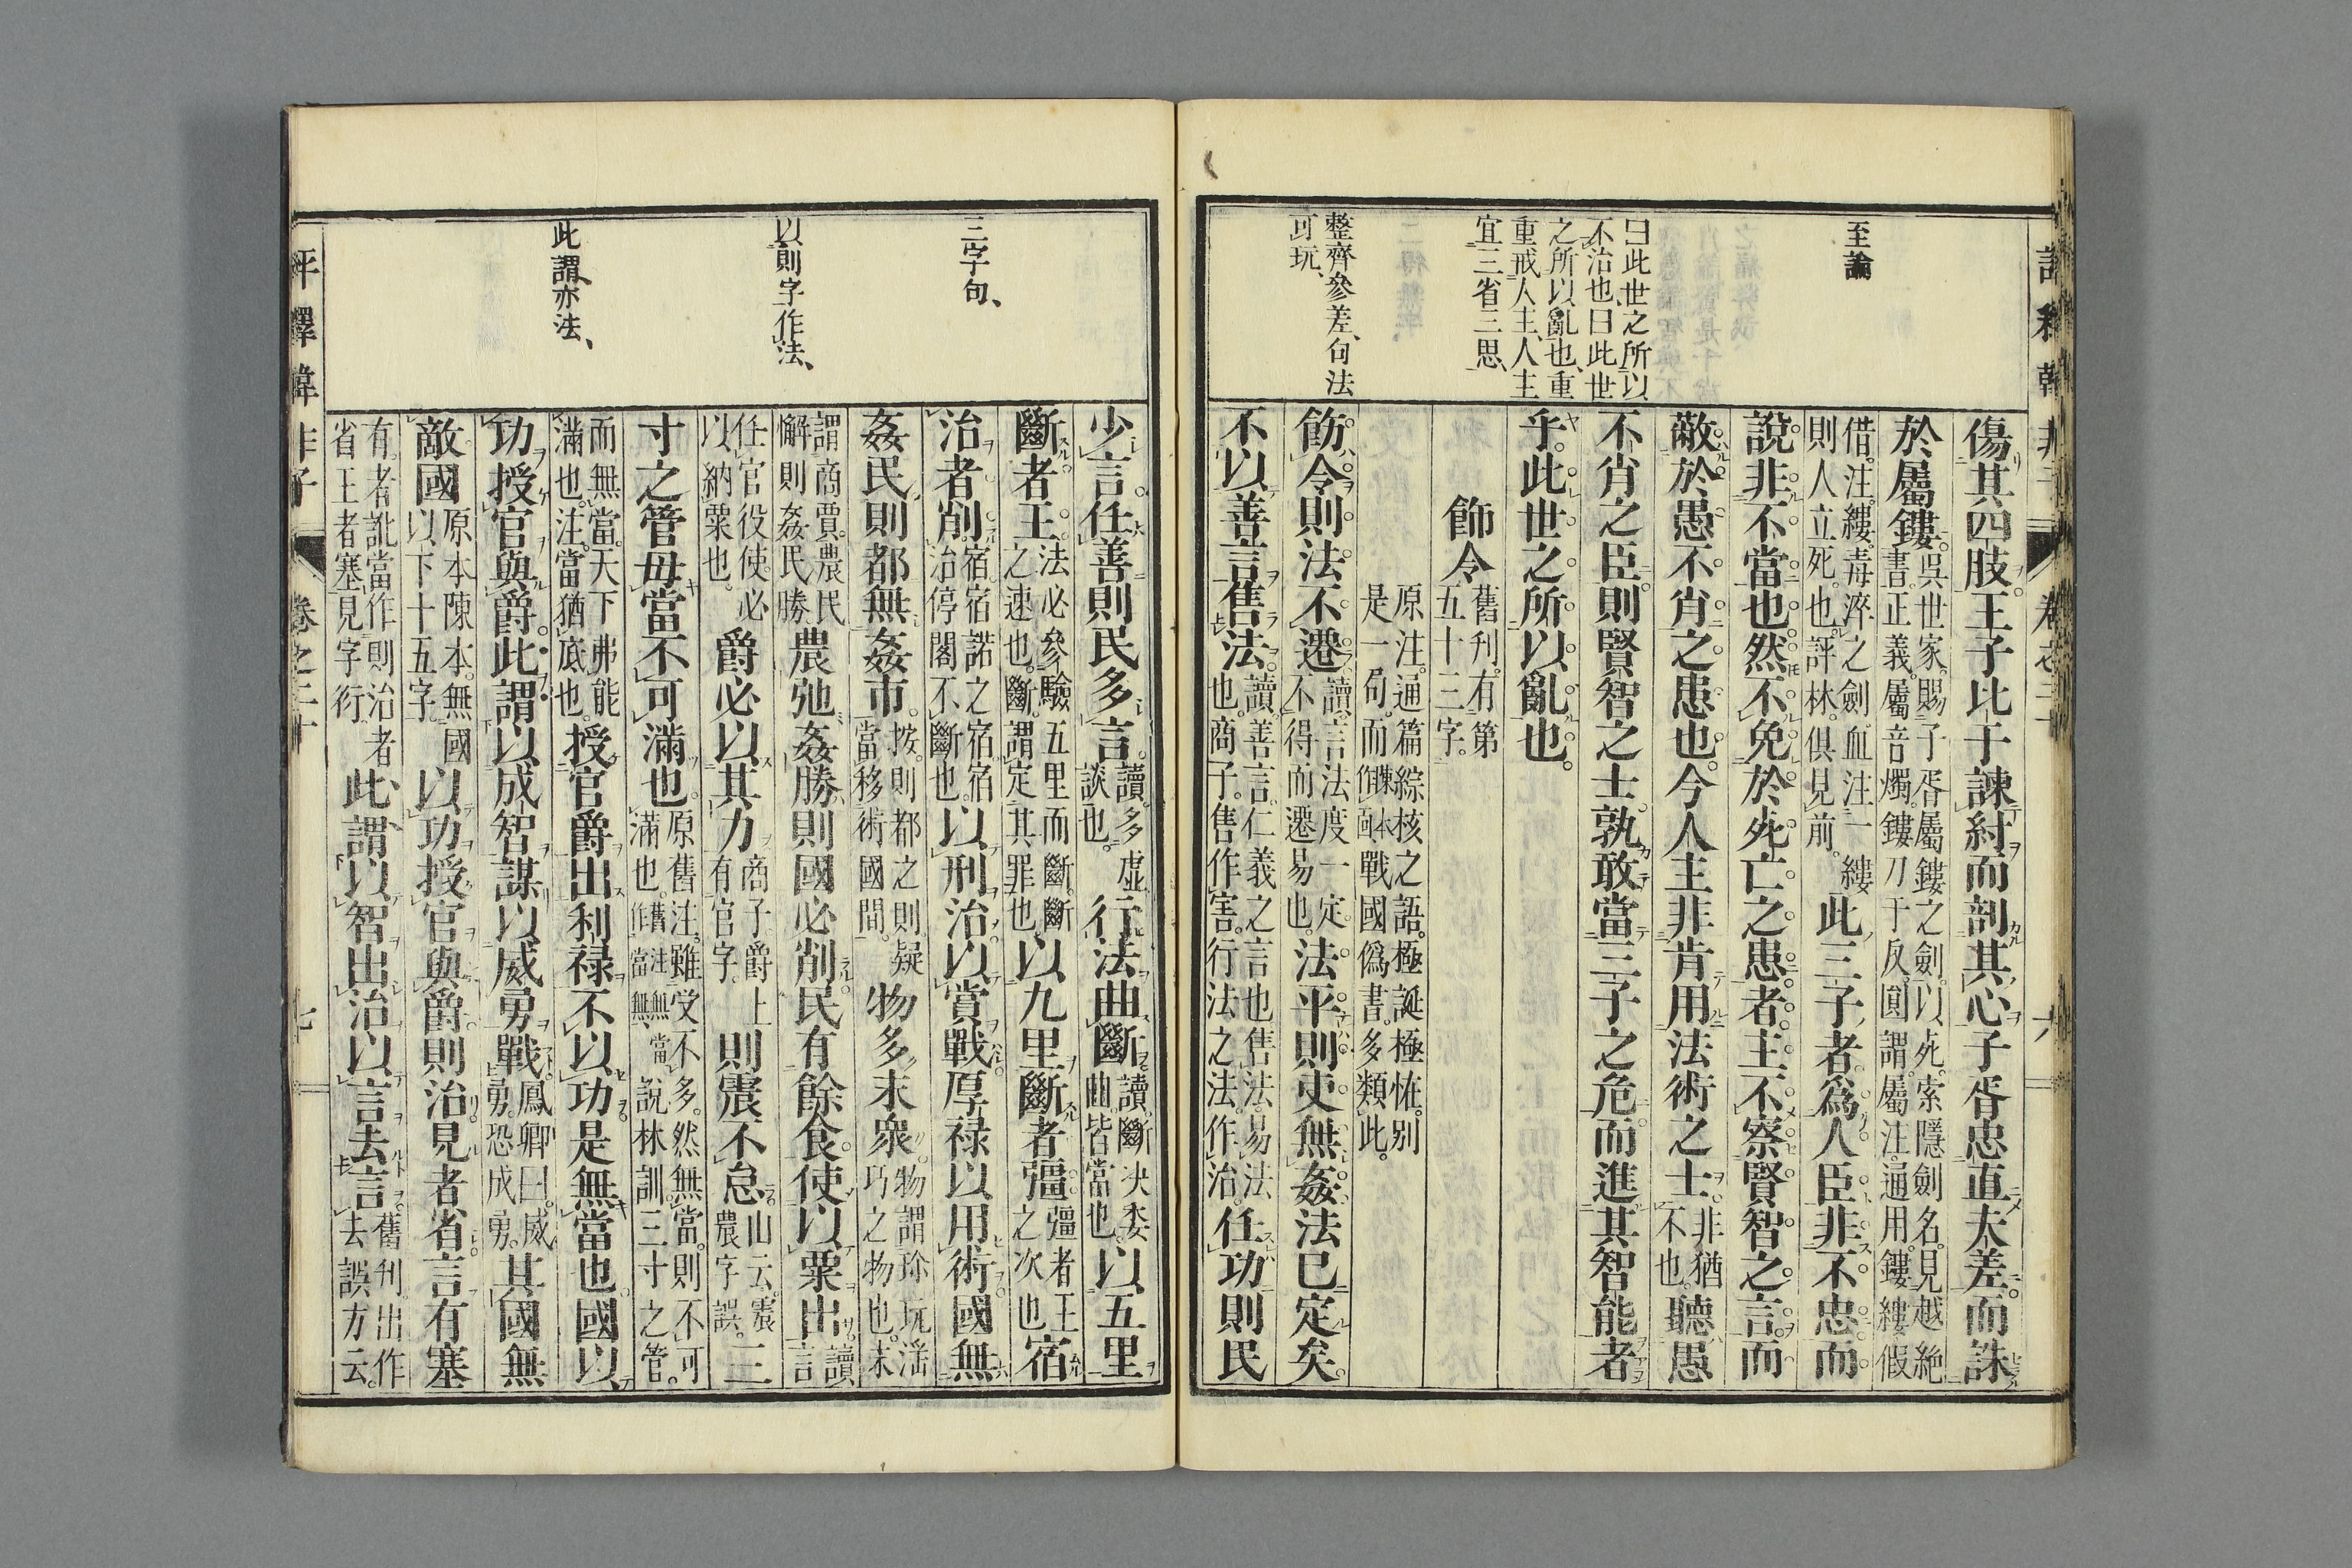 至論
曰此世之所以
不治也、曰此世
之所以亂也、重
重戒人主、人主
宜三省三思、
整齊參差、句法
可玩、
傷其四肢王子比干諫紂而剖其心子胥忠直夫差而誅
於屬鏤。吳世家。賜子胥屬鏤之劍。以死。索隱劍名。見越絶
書。正義。屬音燭。鏤刀于反。圓謂。屬注。通用。鏤縷假
借。注。縷。毒淬之劍。血注一縷
則人立死。也。評林。俱見前。此三子者爲人臣非不忠而
說非不當也然不免於死亡之患者主不察賢智之言而
蔽於愚不肖之患也今人主非肯用法術之士非猶
不也。聽愚
不肖之臣則賢智之士孰敢當三子之危而進其智能者
乎。此世之所以亂也。
飭令舊刊。有第
五十三字。
原注。通篇綜核之語。極誕極怪。别
是一局。而戰國僞書。多類此。
飭令則法不遷讀。言法度一定。
不得而遷易也。法平則吏無姦法已定矣。
不以善言售法。讀。善言。仁義之言也售法。易法
也。商子。售作害。行法之法。作治任功則民
三字句、
以則字作法、
此謂亦法、
少言任善則民多言。讀。多虛
談也。行法曲斷讀。斷决委
曲。皆當也。以五里
斷者王。法必參驗五里而斷。斷
之速也。斷。謂定其罪也以九里斷者彊。彊者王
之次也宿
治者削。宿。宿諾之宿宿
治停閣不斷也。以刑治以賞戰厚祿以用術國無
姦民則都無姦市。按。則都之則疑
當移術國間。物多末衆。物謂珍玩滛
巧之物也。末
謂商賈。農民
懈則姦民勝。農弛姦勝則國必削民有餘食。使以粟出讀
言
任官役使。必
以納粟也。爵必以其力商子。爵上
有官字。則震不怠。山云。震
農字誤。三
寸之管毋當不可滿也。原舊注。雖受不多。然無當。則不可
滿也。說林訓三寸之管。
而無當。天下弗能
滿也。注。當猶底也。授官爵出利祿不以功是無當也國以
功授官與爵此謂以成智謀以威勇戰鳳卿曰。威
勇。恐成勇。其國無
敵國原本陳本。無國
以下十五字。以功授官與爵則治見者省言有塞
有。者訛當作則治者
省王者塞見字行此謂以智出治以言去言舊刊出作
去誤方云。